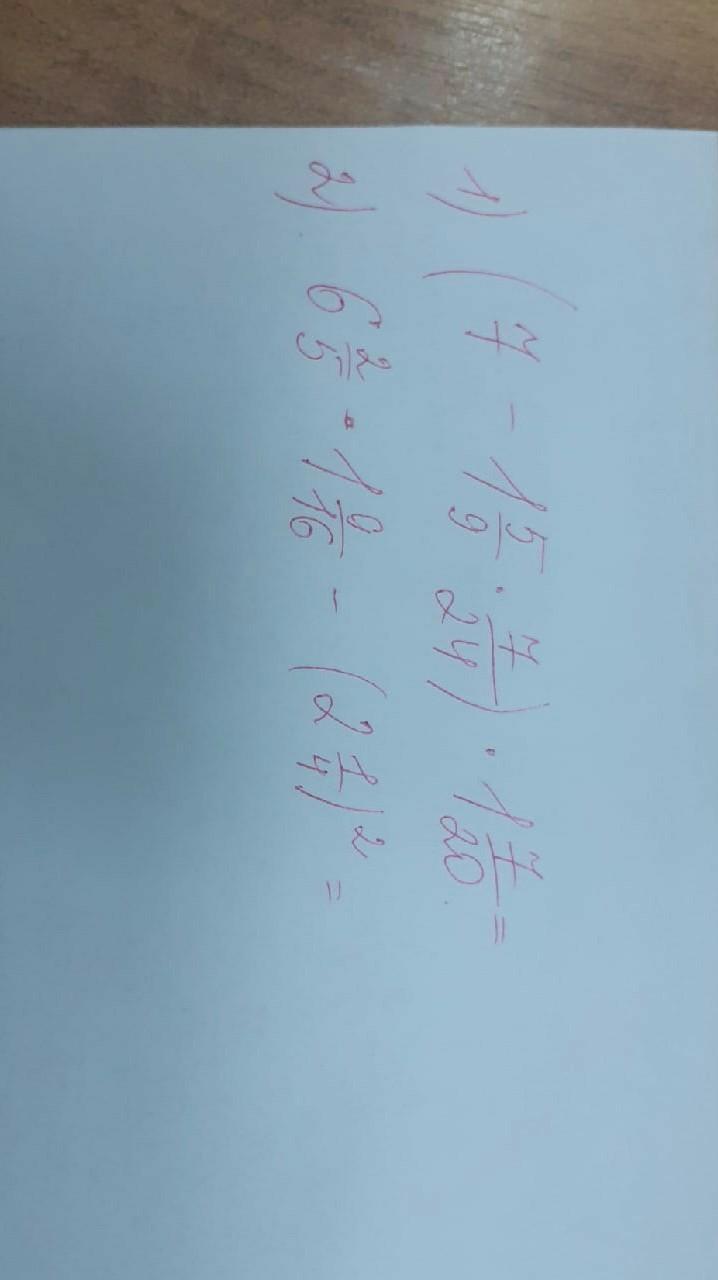 1) (7 - 1 5/9 · 7/24) · 1 7/20 =
2) 6 2/5 · 1 9/16 - (2 1/4)² =